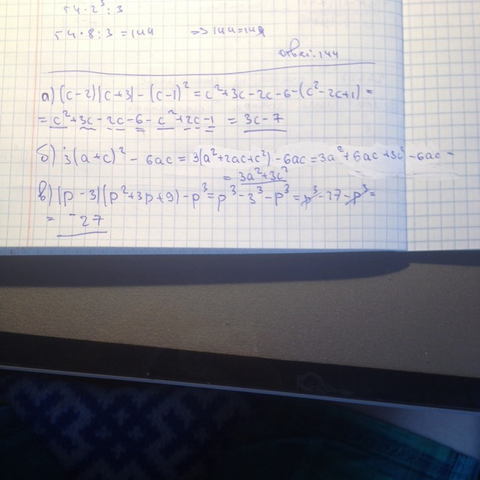 54·2³:3
54·8:3=144 => 144=144
ответ: 144
а) (c-2)(c+3)-(c-1)²=c²+3c-2c-6-(c²-2c+1)=
=c²+3c-2c-6-c²+2c-1=3c-7
б) 3(a+c)²-6ac=3(a²+2ac+c²)-6ac=3a²+6ac+3c²-6ac=
=3a²+3c²
в) (p-3)(p²+3p+9)-p³=p³-3³-p³=p³-27-p³=
=-27